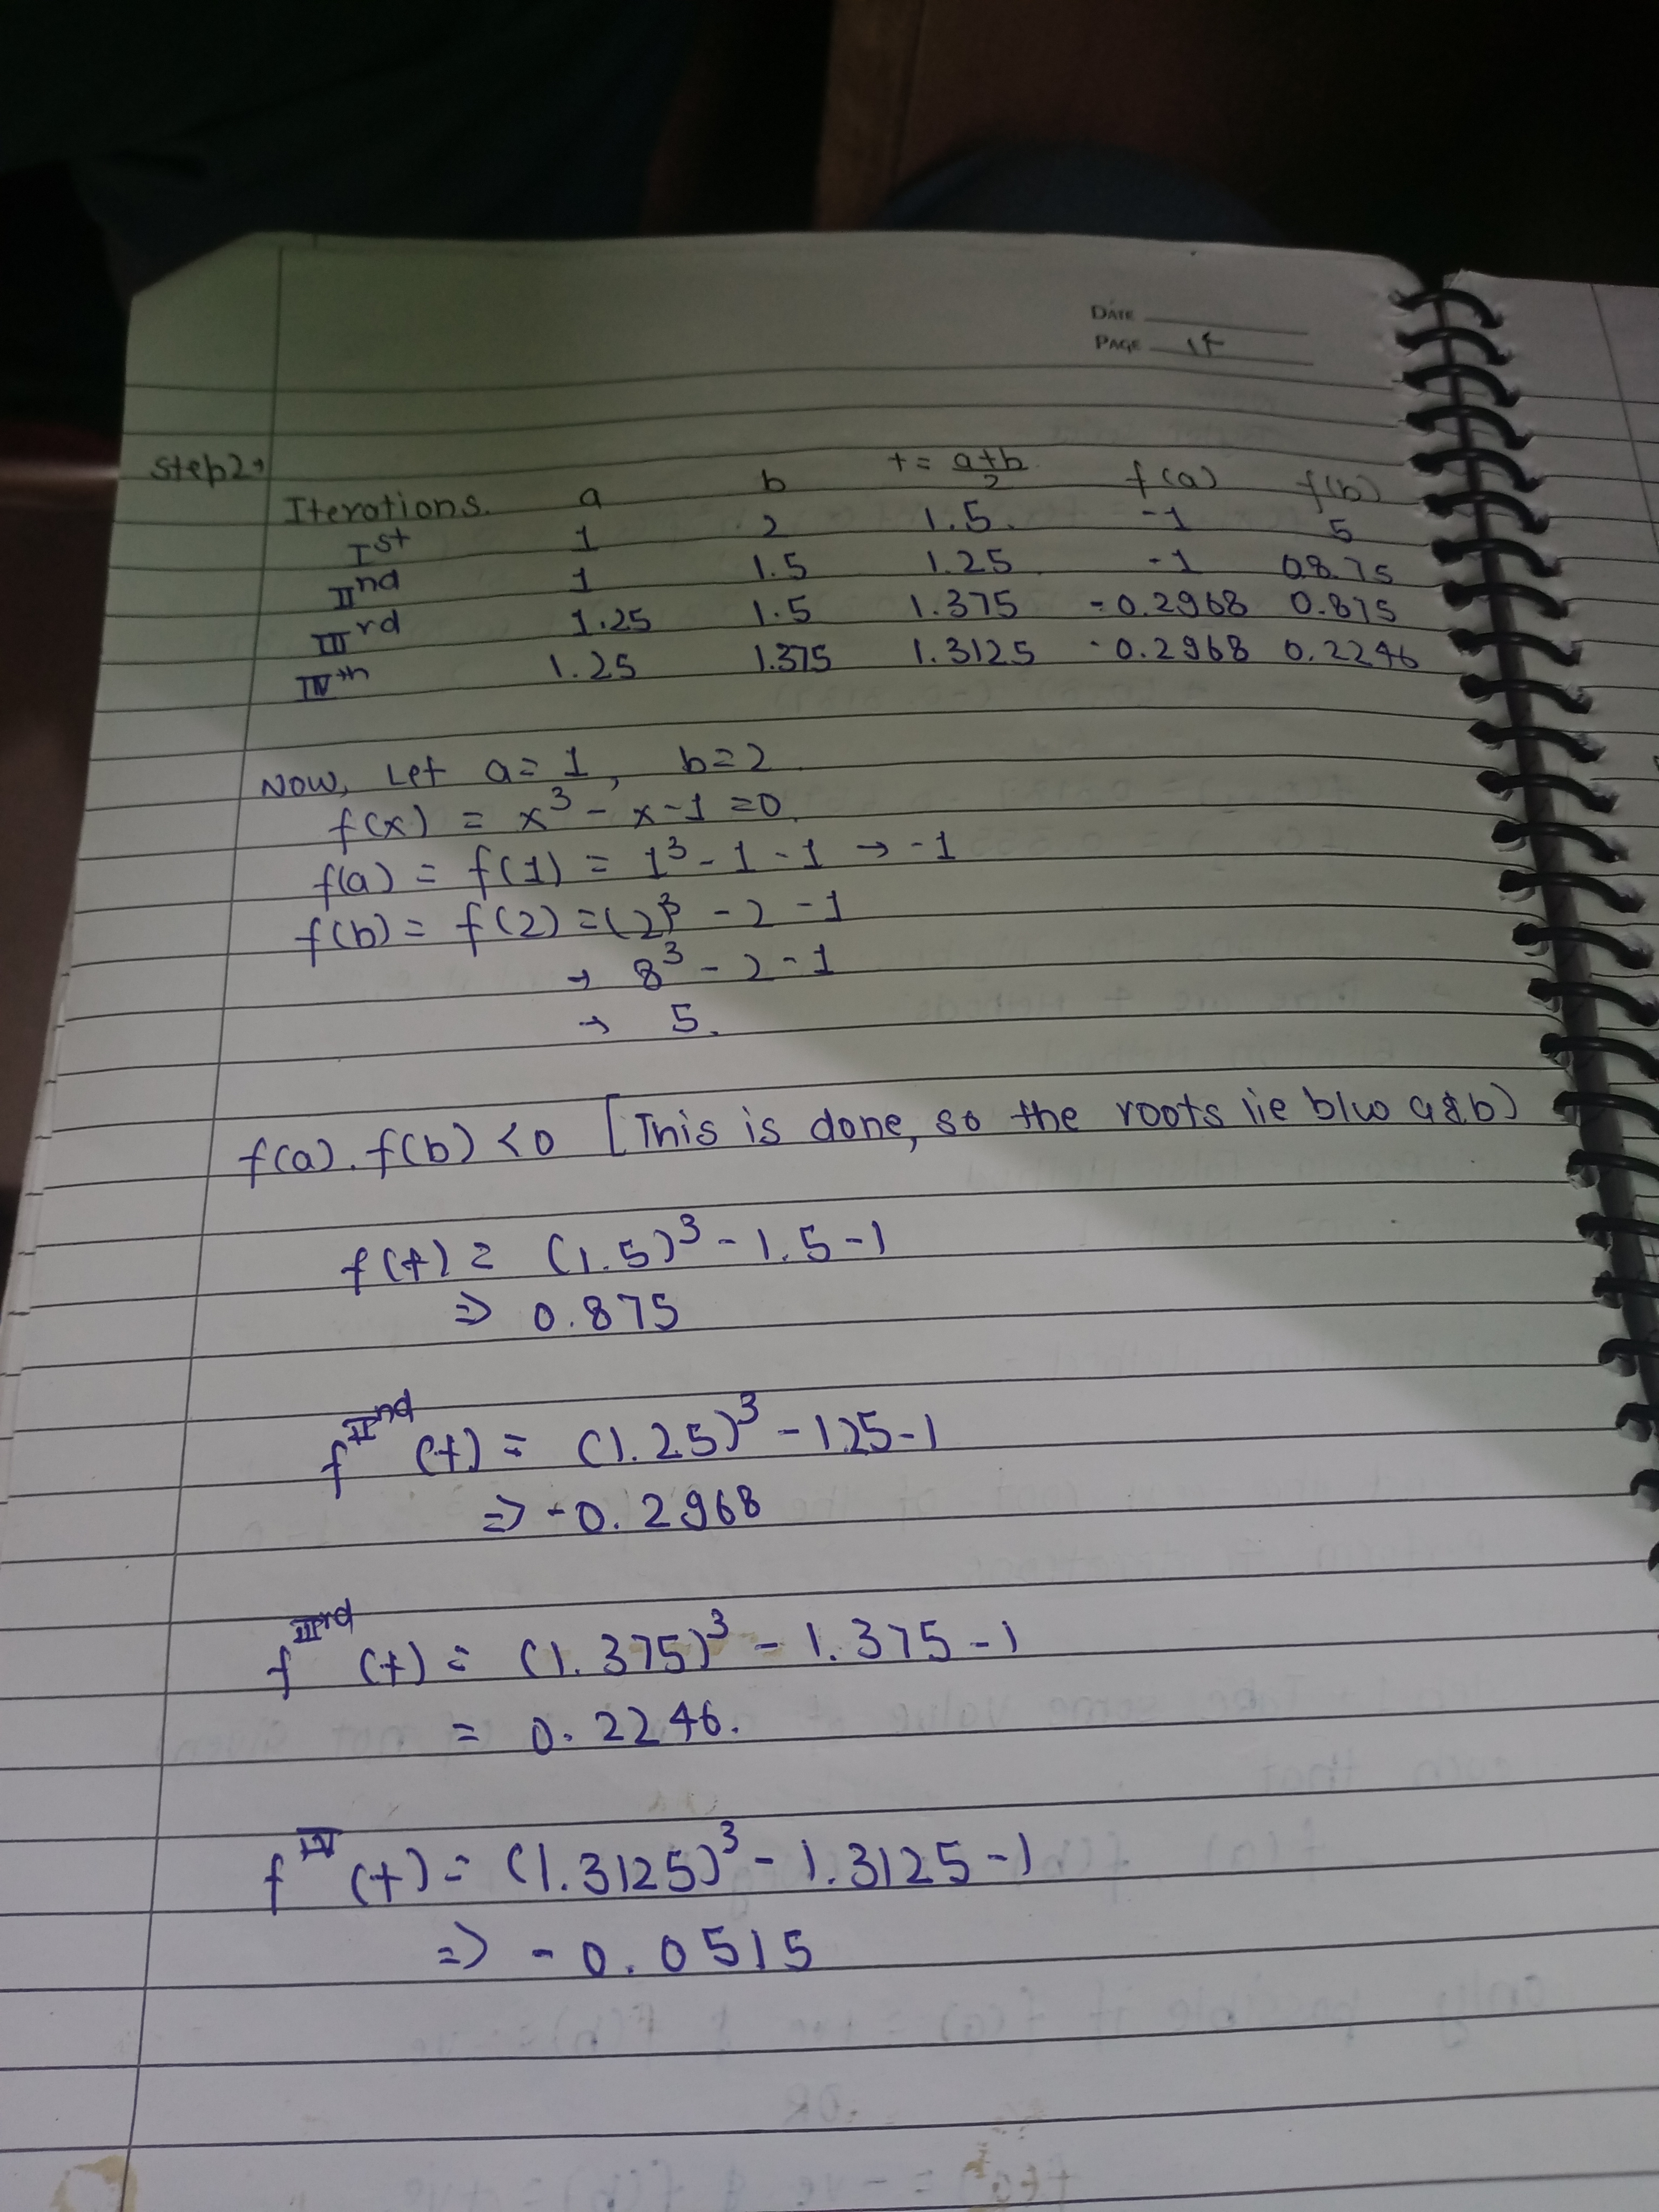 DATE
PAGE 14
Step 2→
Iterations. a b t = a+b/2 f(a) f(b)
Ist 1 2 1.5. -1 5
IInd 1 1.5 1.25 -1 08.75
IIIrd 1.25 1.5 1.375 -0.2968 0.875
IVth 1.25 1.375 1.3125 -0.2968 0.2246
NOW, Let a = 1, b = 2
f(x) = x³ - x - 1 = 0.
f(a) = f(1) = 1³ - 1 - 1 → -1
f(b) = f(2) = (2)³ - 2 - 1
→ 8³ - 2 - 1
→ 5.
f(a). f(b) < 0 [This is done, so the roots lie b/w a & b)
f(t) = (1.5)³ - 1.5 - 1
⇒ 0.875
f IInd (t) = (1.25)³ - 1.25 - 1
⇒ -0.2968
f IIIrd (t) = (1.375)³ - 1.375 - 1
= 0.2246.
f IV (t) = (1.3125)³ - 1.3125 - 1
⇒ -0.0515